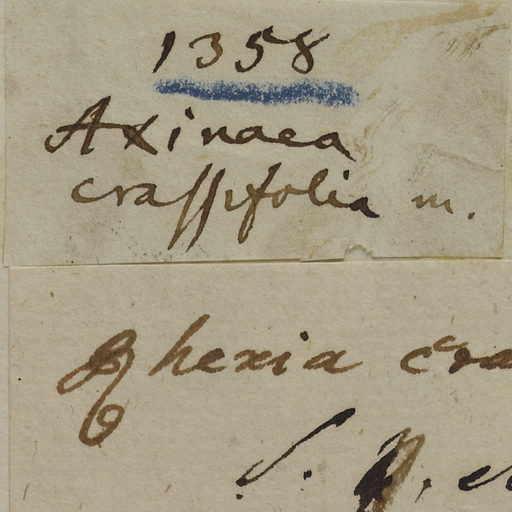 1358
Axinaea
crassifolia m.
Rhexia cra
S.